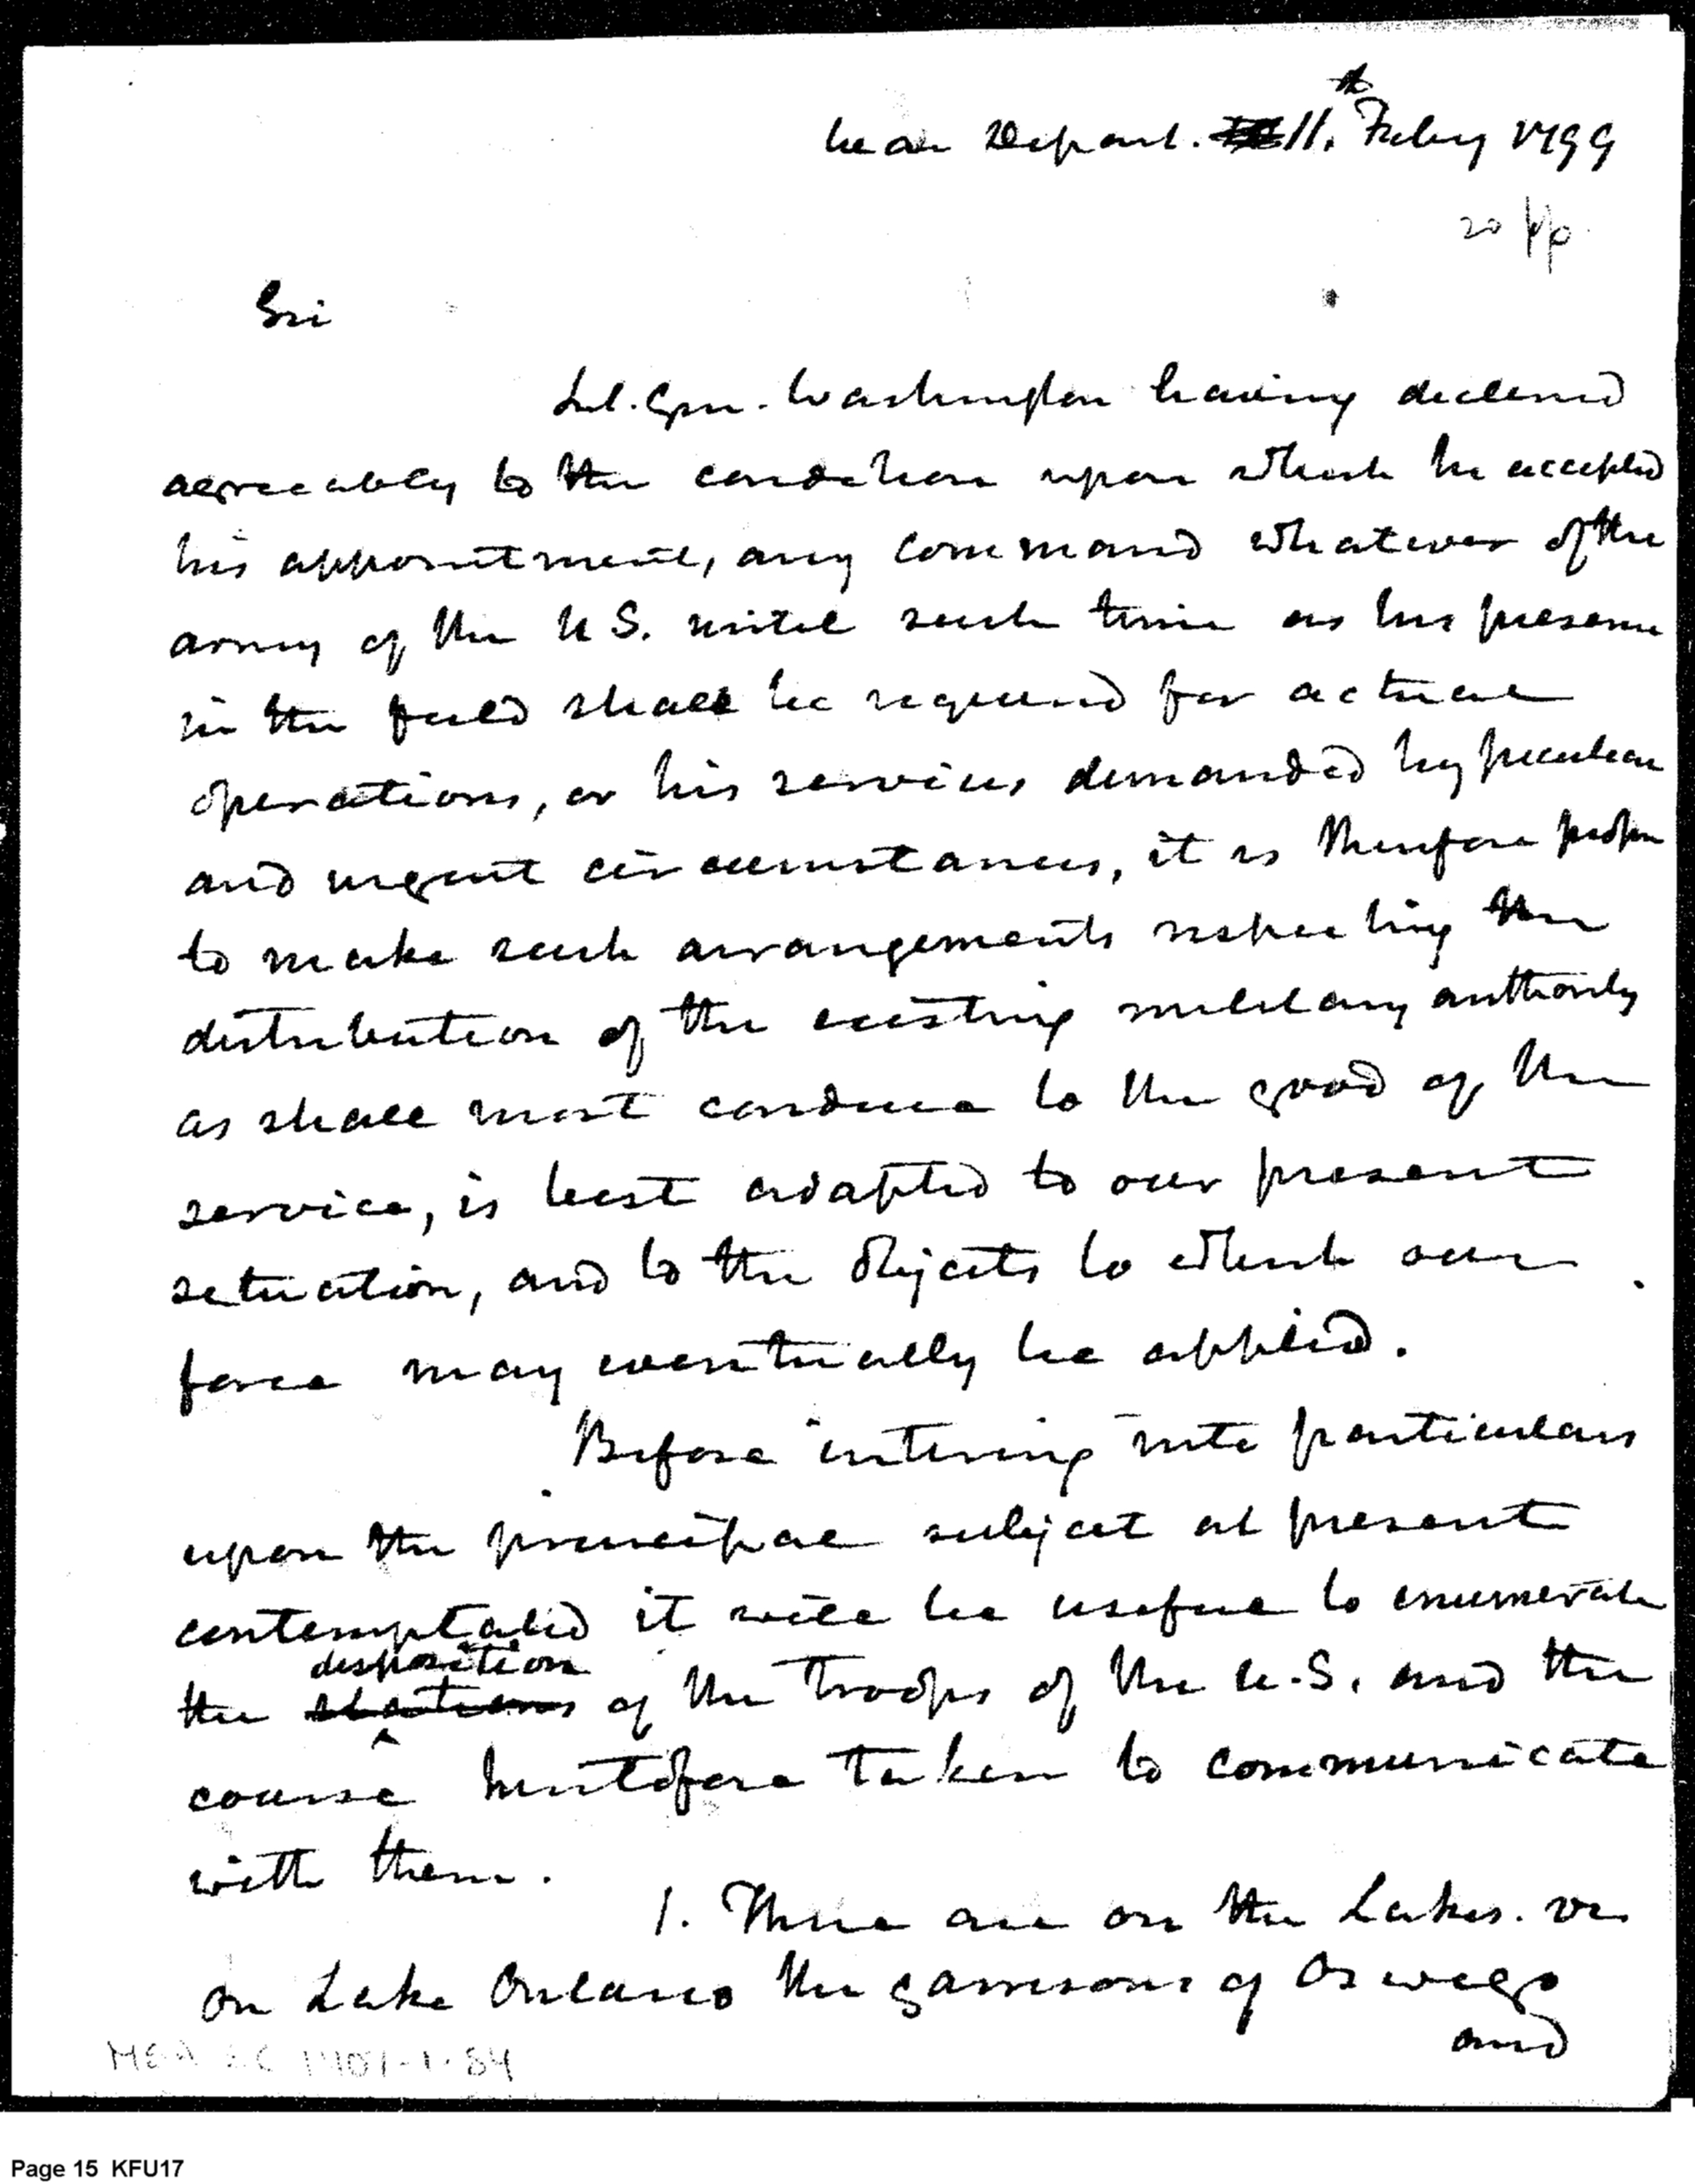 War Depart. 11th Feby 1799
20 pp
Sir
Lt. Gen. Washington having declined
agreeably to the condition upon which he accepted
his appointment, any command whatever of the
army of the U S. until such time as his presence
in the field shall be required for actual
operations, or his services demanded by peculiar
and urgent circumstances, it is therefore proper
to make such arrangements respecting the
distribution of the existing military authority
as shall most conduce to the good of the
service, is best adapted to our present
situation, and to the objects to which our
force may eventually be applied.
Before entering into particulars
upon the principal subject at present
contemplated it will be useful to enumerate
disposition
the stations of the Troops of the U.S. and the
course heretofore taken to communicate
with them.
1. There are on the Lakes. viz
on Lake Ontario the garrisons of Oswego
and
Page 15 KFU17